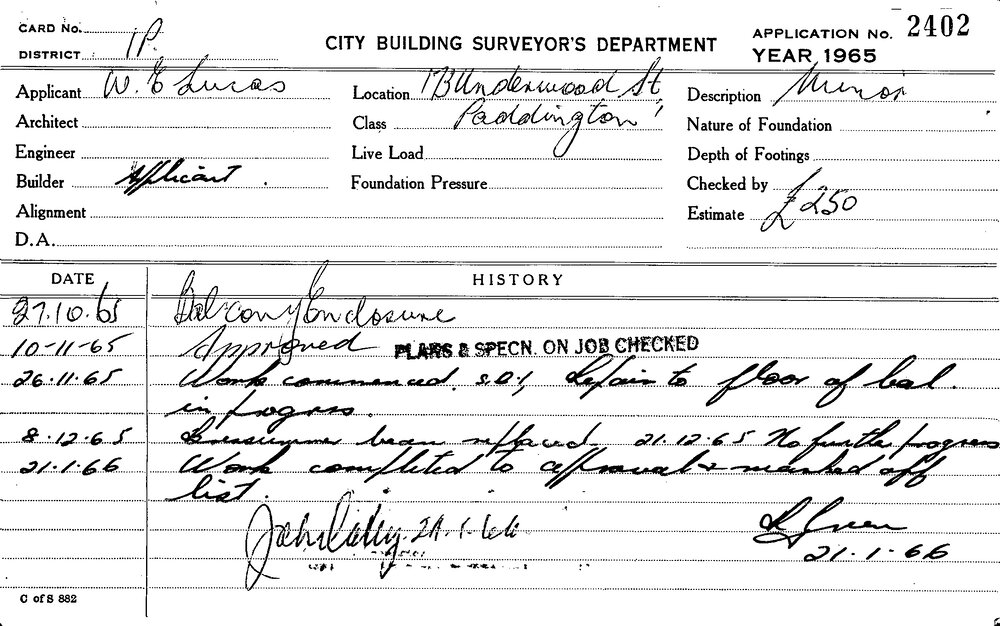 CARD No.
DISTRICT 1P.
CITY BUILDING SURVEYOR'S DEPARTMENT
APPLICATION No. 2402
YEAR 1965
Applicant W. E Lucas
Location 13 Underwood St,
Description Minor
Architect
Class Paddington
Nature of Foundation
Engineer
Live Load
Depth of Footings
Builder Applicant.
Foundation Pressure
Checked by
Alignment
Estimate £250
D.A.
DATE HISTORY
27.10.65 Balcony Enclosure
10-11-65 Approved PLANS & SPECN. ON JOB CHECKED
26.11.65 Work commenced. Repair to floor of bal.
in progress.
8.12.65 beam replaced. 21.12.65 No further progress
21.1.66 Work completed to approval & marked off
list.
John 21.1.66
21.1.66
C of S 882